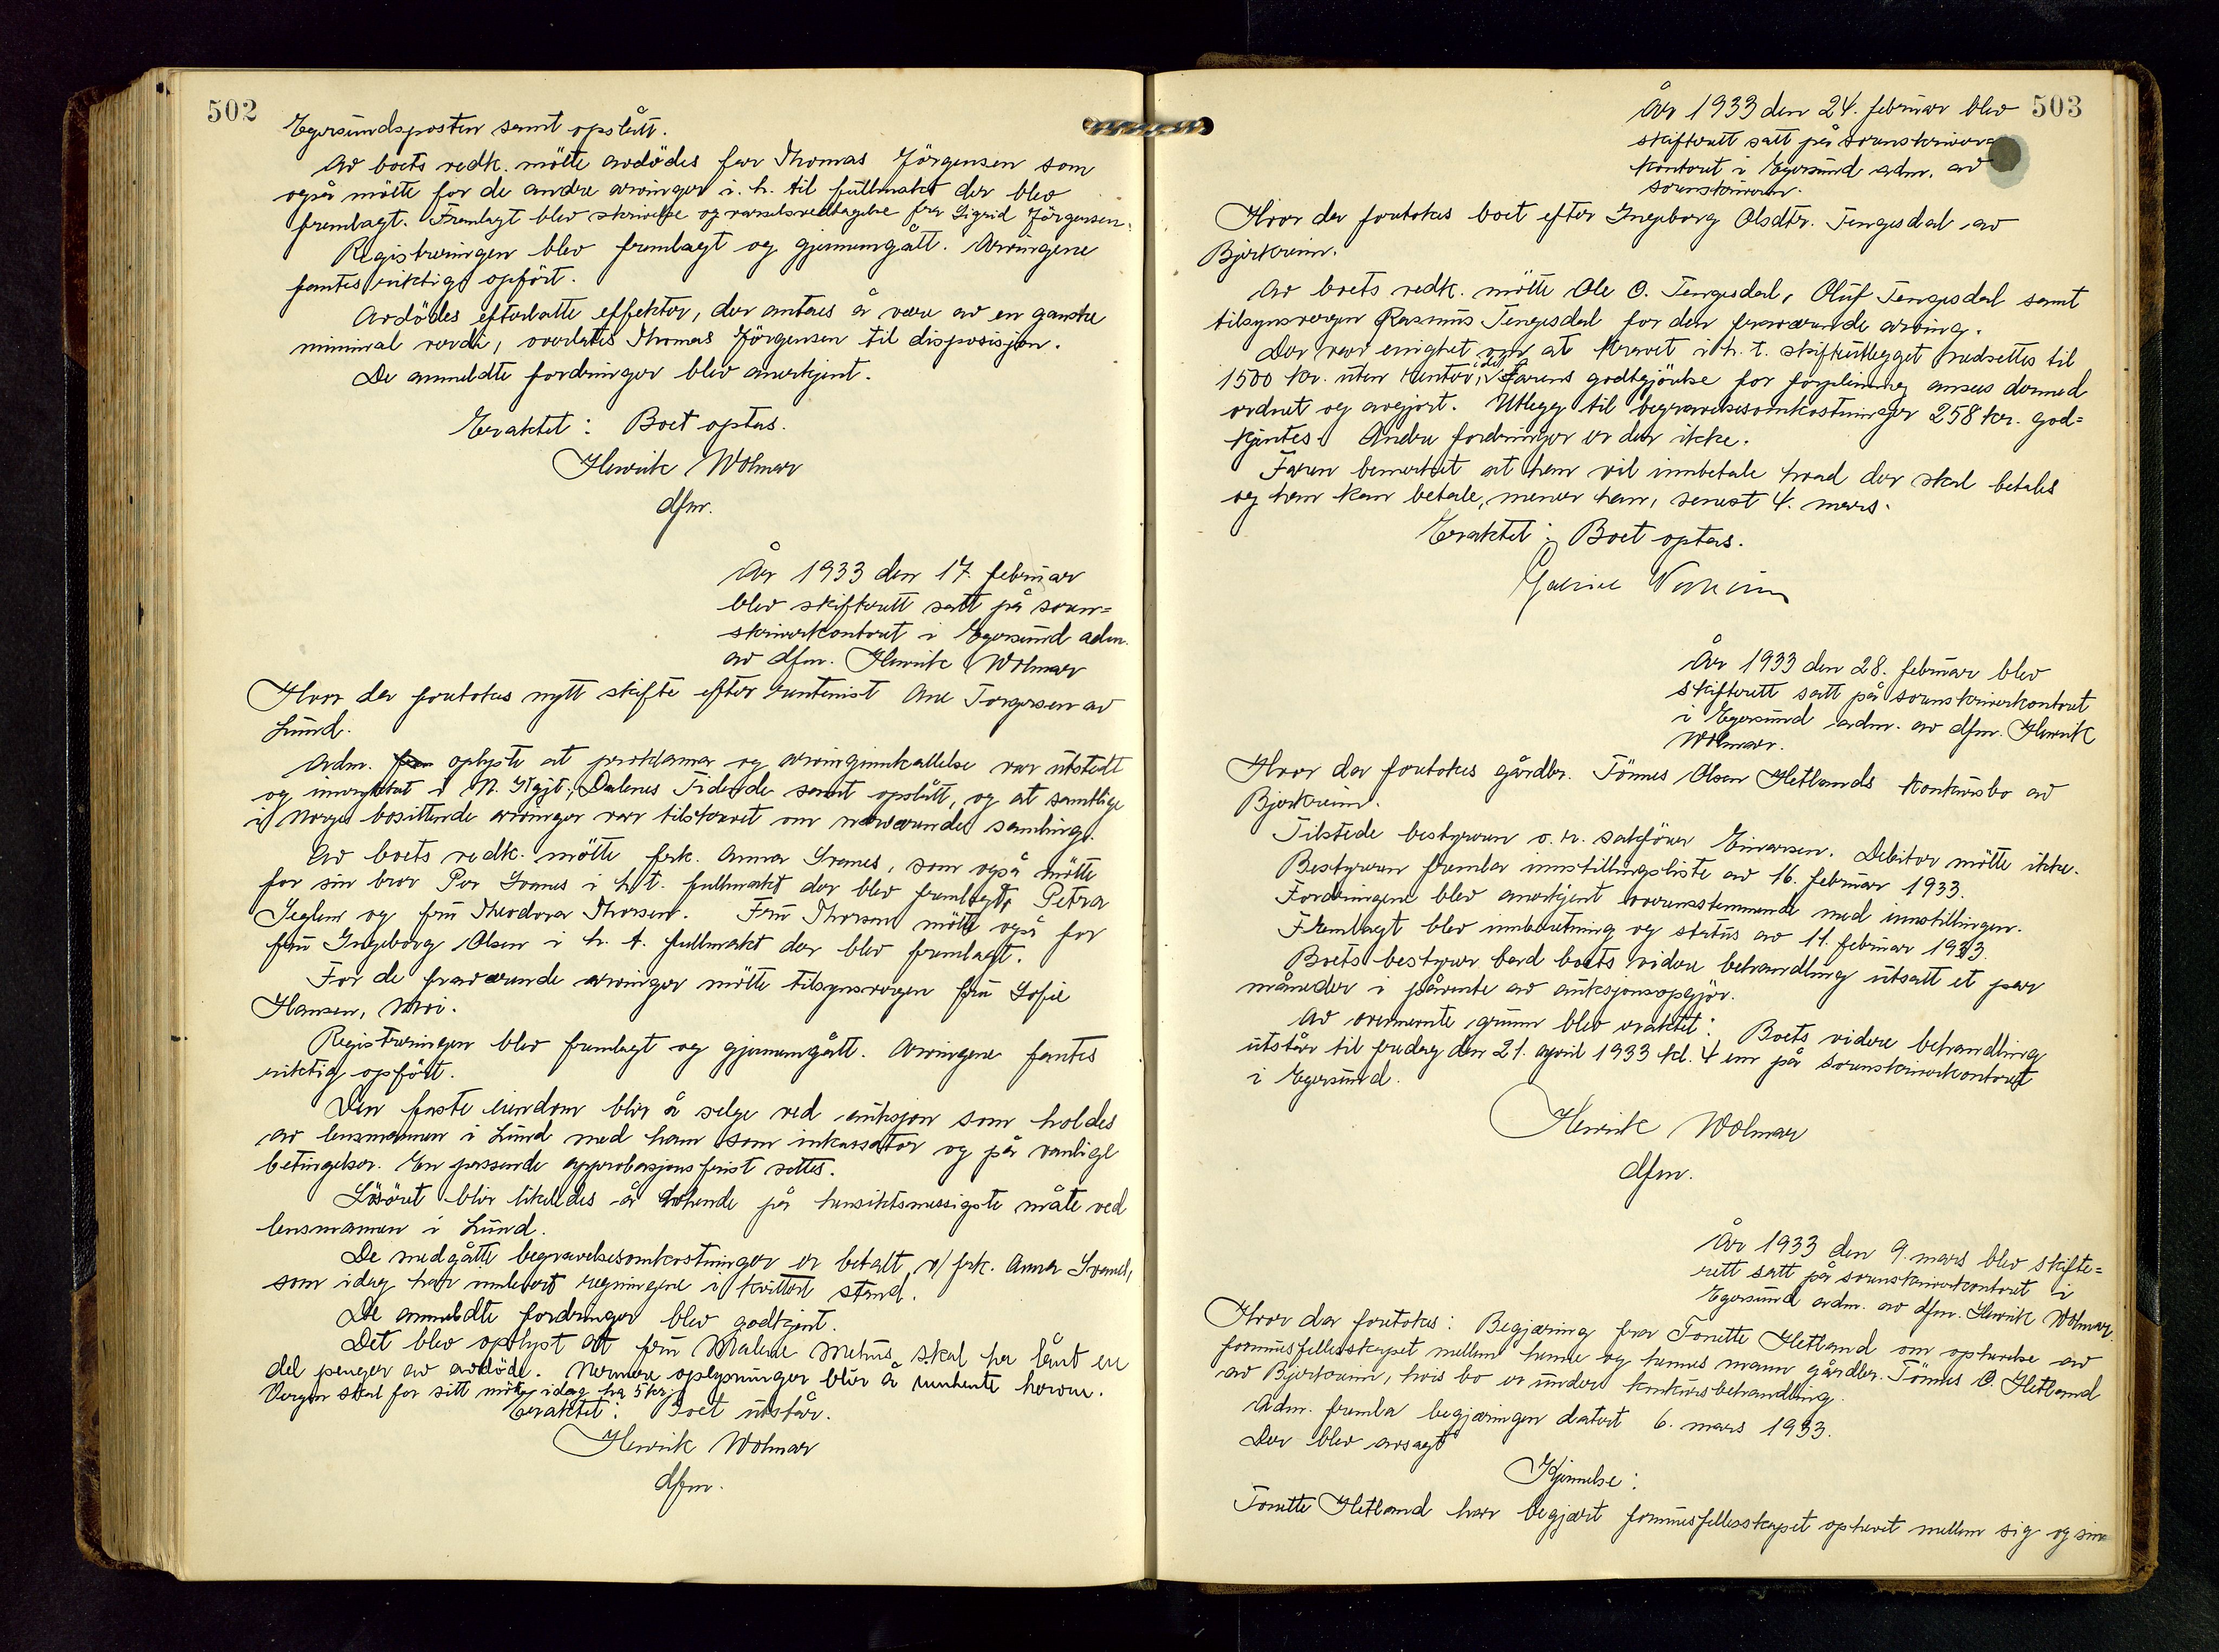 502
Egersundsposten samt opslått.
Av boets vedk. mötte avdödes far Thomas Jörgensen som
også mötte for de andre arvinger i. h. til fullmakt der blev
fremlagt. Fremlagt blev skrivelse og varselsvedtagelse fra Sigrid Jörgensen.
Registreringen blev fremlagt og gjennemgått. Arvingene
fantes riktig opfört.
Avdödes efterlatte effekter, der antaes å være av en ganske
minimal verdi, overlates Thomas Jörgensen til disposisjon.
De anmeldte fordringer blev anerkjent.
Eraktet: Boet optas.
Henrik Wolmar
dfm.
År 1933 den 17. februar
blev skifterett satt på soren=
skriverkontoret i Egersund adm.
av dfm. Henrik Wolmar
Hvor der foretokes nytt skifte efter rentenist Ane Torgersen av
Lund.
Adm. oplyste at proklama og arvinginnkallelse var utstedt
og inrykket i N. Kgjt., Dalenes Tidende samt opslått, og at samtlige
i Norge bosittende arvinger var tilskrevet om nærværende samling.
Av boets vedk. mötte frk. Anna Svanes, som også mötte
for sin bror Per Svanes i h. t. fullmakt der blev fremlagt, Petra
Seglem og fru Theodora Thorsen. Fru Thorsen mötte også for
fru Ingeborg Olsen i h. t. fullmakt der blev fremlagt.
For de fraværende arvinger mötte tilsynsvergen fru Sofie
Hansen, Moi.
Registreringen blev fremlagt og gjennemgått. Arvingene fantes
riktig opfört.
Den faste eiendom blir å selge ved auksjon som holdes
av lensmannen i Lund med ham som inkassator og på vanlige
betingelser. En passende approbasjonsfrist settes.
Lösöret blir likeledes å avhende på hensiktsmessigste måte ved
lensmannen i Lund.
De medgåtte begravelsesomkostninger er betalt v/ frk. Anna Svanes,
som idag har innlevert regningene i kvittert stand.
De anmeldte fordringer blev godkjent.
Det blev oplyst at fru Malene Mehus skal ha lånt en
del penger av avdöde. Nermere oplysninger blir å innhente herom.
Vergen skal for sitt möte idag ha 5 kr.
Eraktet: Boet utstår.
Henrik Wolmar
dfm.
503
År 1933 den 24. februar blev
skifterett satt på sorenskriver
kontoret i Egersund adm. av
sorenskriveren.
Hvor der foretokes boet efter Ingeborg Olsdtr. Tengesdal av
Bjerkreim.
Av boets vedk. mötte Ole O. Tengesdal, Oluf Tengesdal samt
tilsynsvergen Rasmus Tengesdal for den fraværende arving.
Der var enighet om at kravet i h. t. skifteutlegget nedsettes til
1500 kr. uten renter, idet farens godtgjörelse for forpleining ansees dermed
ordnet og avgjort. Utlegg til begravelsesomkostninger 258 kr. god=
kjentes. Andre fordringer er der ikke.
Faren bemerket at han vil innbetale hvad der skal betales
og han kan betale, mener han, senest 4. mars.
Eraktet: Boet optas.
År 1933 den 28. februar blev
skifterett satt på sorenskriverkontoret
i Egersund adm. av dfm. Henrik
Wolmar.
Hvor der foretokes gårdbr. Tönnes Olsen Hetlands konkursbo av
Bjerkreim.
Tilstede bestyreren o. r. sakförer Einarsen. Debitor mötte ikke.
Bestyreren fremla innstillingsliste av 16. februar 1933.
Fordringene blev anerkjent overensstemmende med innstillingen.
Fremlagt blev innberetning og status av 11. februar 1933.
Boets bestyrer bad boets videre behandling utsatt et par
måneder i påvente av auksjonsopgjör.
Av overnevnte grunn blev eraktet: Boets videre behandling
utstår til fredag den 21. april 1933 kl. 4 em på sorenskriverkontoret
i Egersund.
Henrik Wolmar
dfm.
År 1933 den 9. mars blev skifte=
rett satt på sorenskriverkontoret i
Egersund adm. av dfm. Henrik Wolmar.
Hvor der foretokes: Begjæring fra Tonette Hetland om ophevelse av
formuesfellesskapet mellem henne og hennes mann gårdbr. Tönnes O. Hetland
av Bjerkreim, hvis bo er under konkursbehandling.
Adm. fremla begjæringen datert 6. mars 1933.
Der blev avsagt
Kjennelse:
Tonette Hetland har begjært formuesfellesskapet ophevet mellem sig og sin